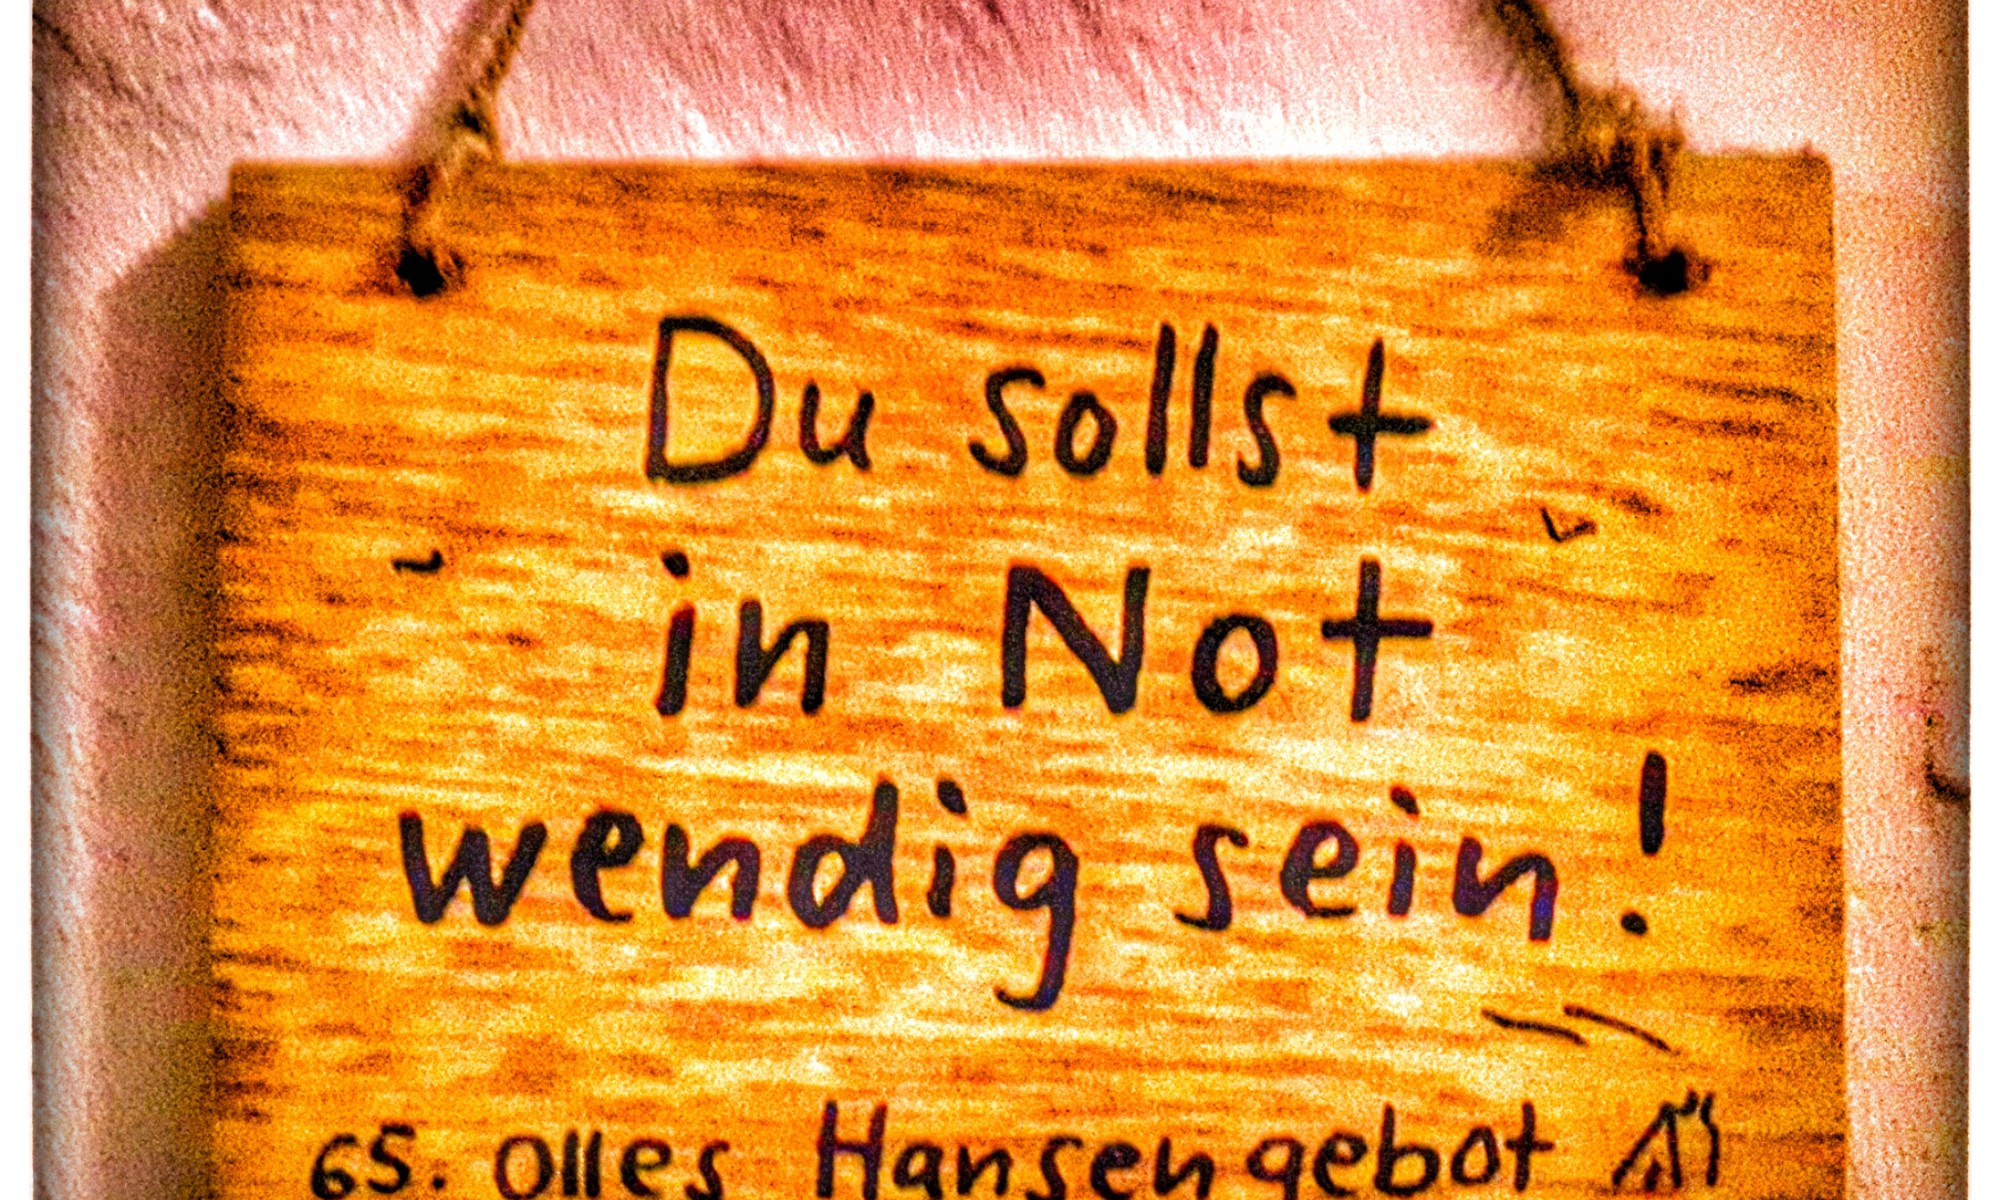 Du sollst
in Not
wendig sein!
65. olles Hansengebot